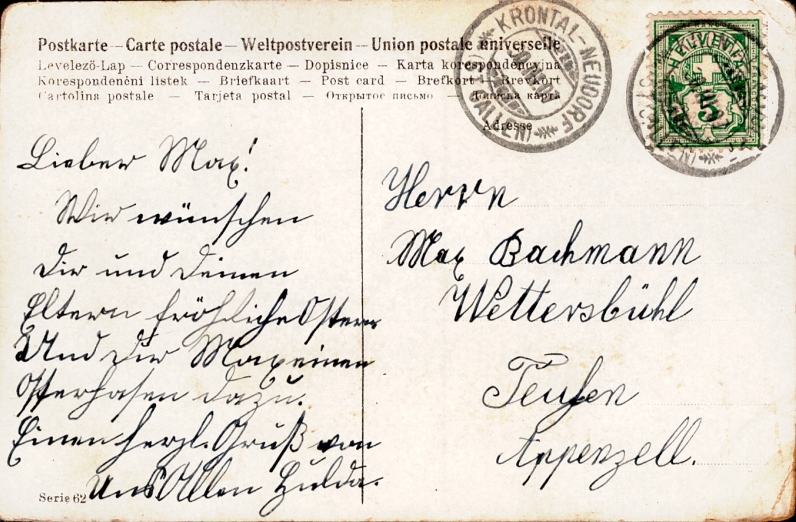 Postkarte – Carte postale – Weltpostverein – Union postale universelle
Levelező-Lap – Correspondenzkarte – Dopisnice – Karta korespondencyjna
Korespondenční lístek – Briefkaart – Post card – Brefkort – Brevkort
Cartolina postale – Tarjeta postal – Открытое письмо – Дописна карта
Adresse
KRONTAL-NEUDORF
(ST. GALLEN)
HELVETIA
5
Lieber Max!
Wir wünschen
Dir und Deinen
Eltern fröhliche Ostern
Und Dir Max einen
Osterhasen dazu.
Einen herzl. Gruß von
Uns Allen Hulda.
Herrn
Max Bachmann
Wettersbühl
Teufen
Appenzell.
Serie 62